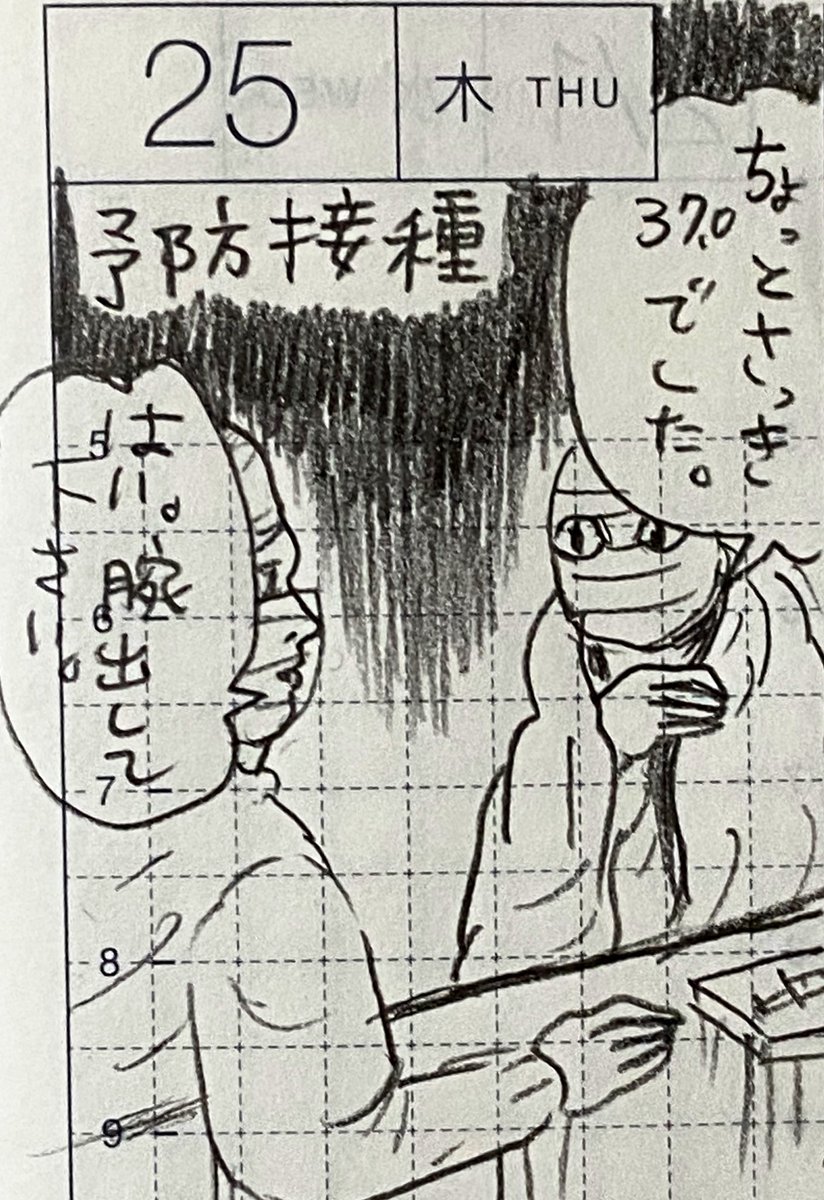 25
木 THU
予防接種
ちょっとさっき
37.0
でした。
はい。腕出して
下さい。
5
6
7
8
9